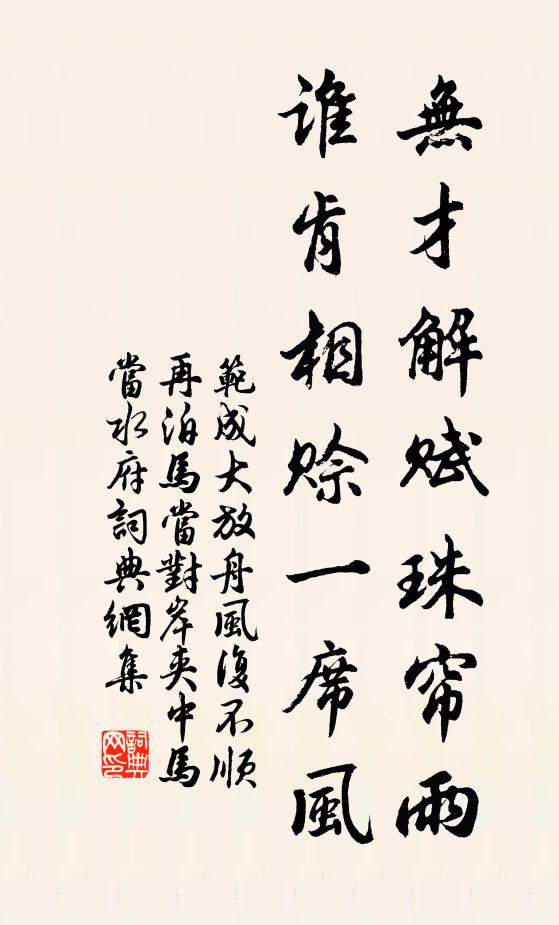 無才解赋珠帘雨
谁肯相赊一席風
範成大放舟風復不順
再泊馬當對岸夾中馬
當水府詞典網集
詞典
网印